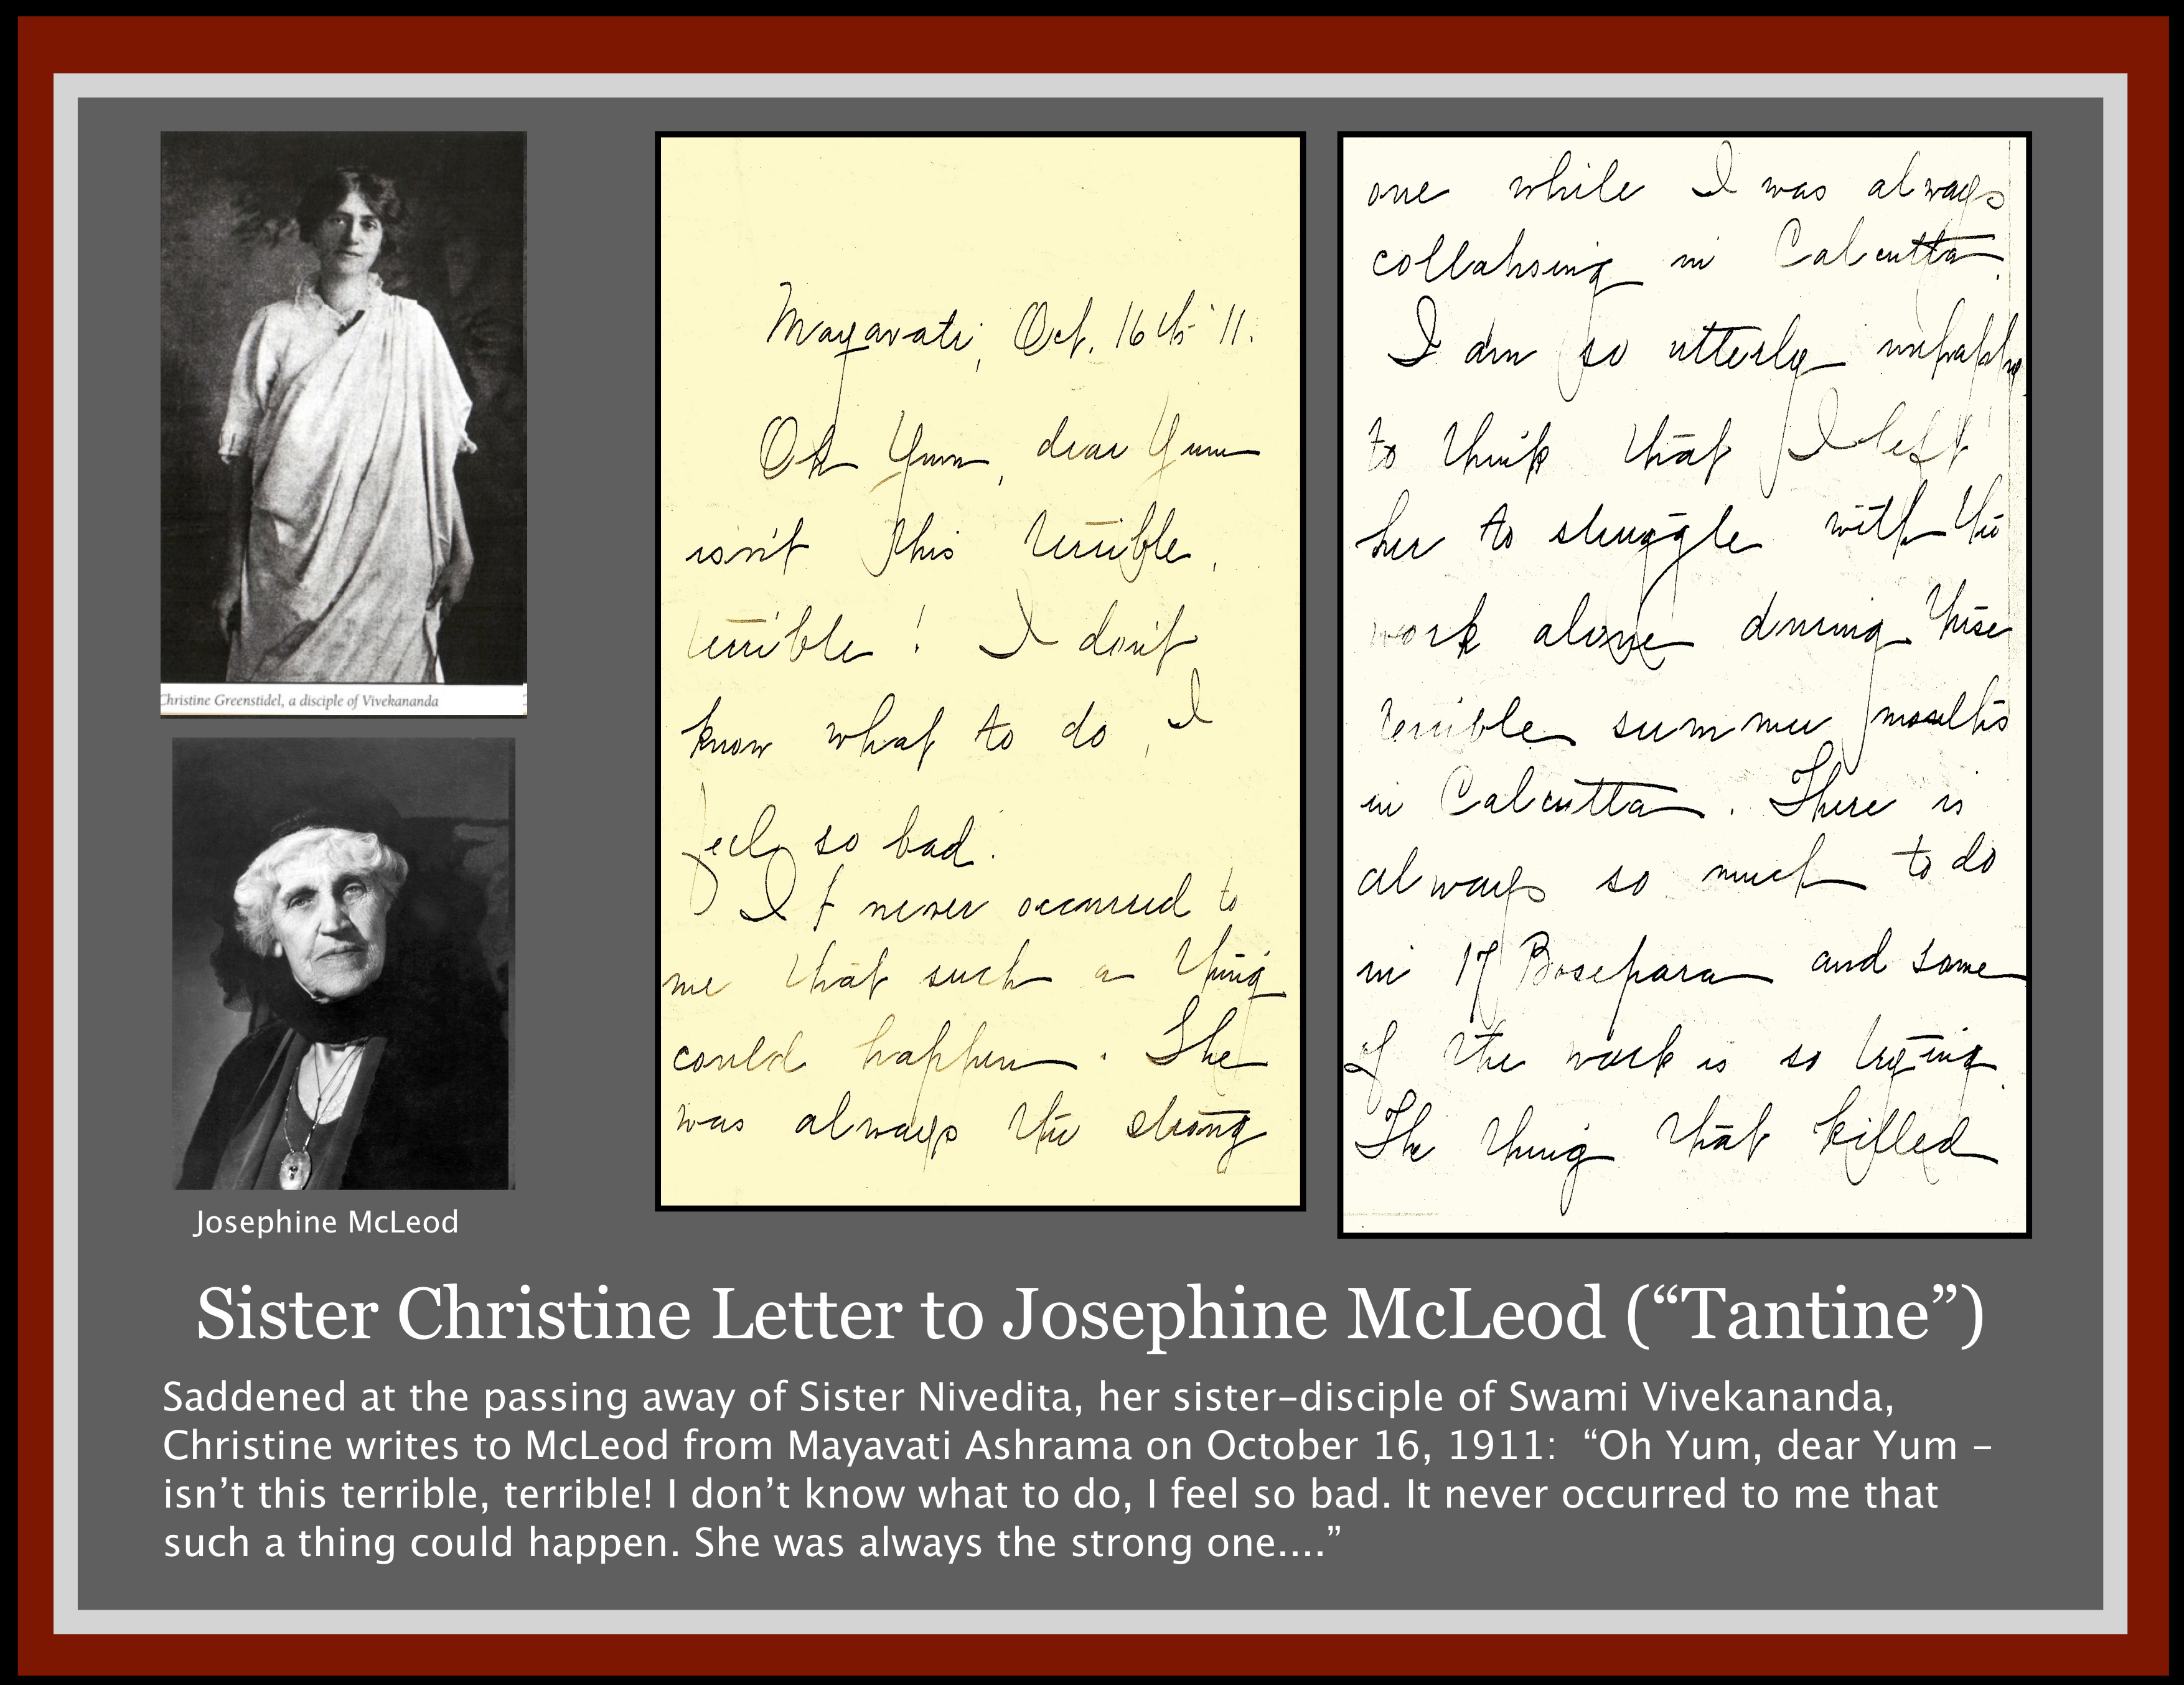 Christine Greenstidel, a disciple of Vivekananda
Josephine McLeod
Mayavati, Oct. 16th '11.
Oh Yum, dear Yum
isn't this terrible,
terrible! I don't
know what to do, I
feel so bad.
It never occurred to
me that such a thing
could happen. She
was always the strong
one while I was always
collapsing in Calcutta.
I am so utterly unhappy
to think that I left
her to struggle with the
work alone during these
terrible summer months
in Calcutta. There is
always so much to do
in 17 Bosepara and some
of the work is so trying.
The thing that killed
Sister Christine Letter to Josephine McLeod (“Tantine”)
Saddened at the passing away of Sister Nivedita, her sister-disciple of Swami Vivekananda,
Christine writes to McLeod from Mayavati Ashrama on October 16, 1911:  “Oh Yum, dear Yum –
isn’t this terrible, terrible! I don’t know what to do, I feel so bad. It never occurred to me that
such a thing could happen. She was always the strong one....”